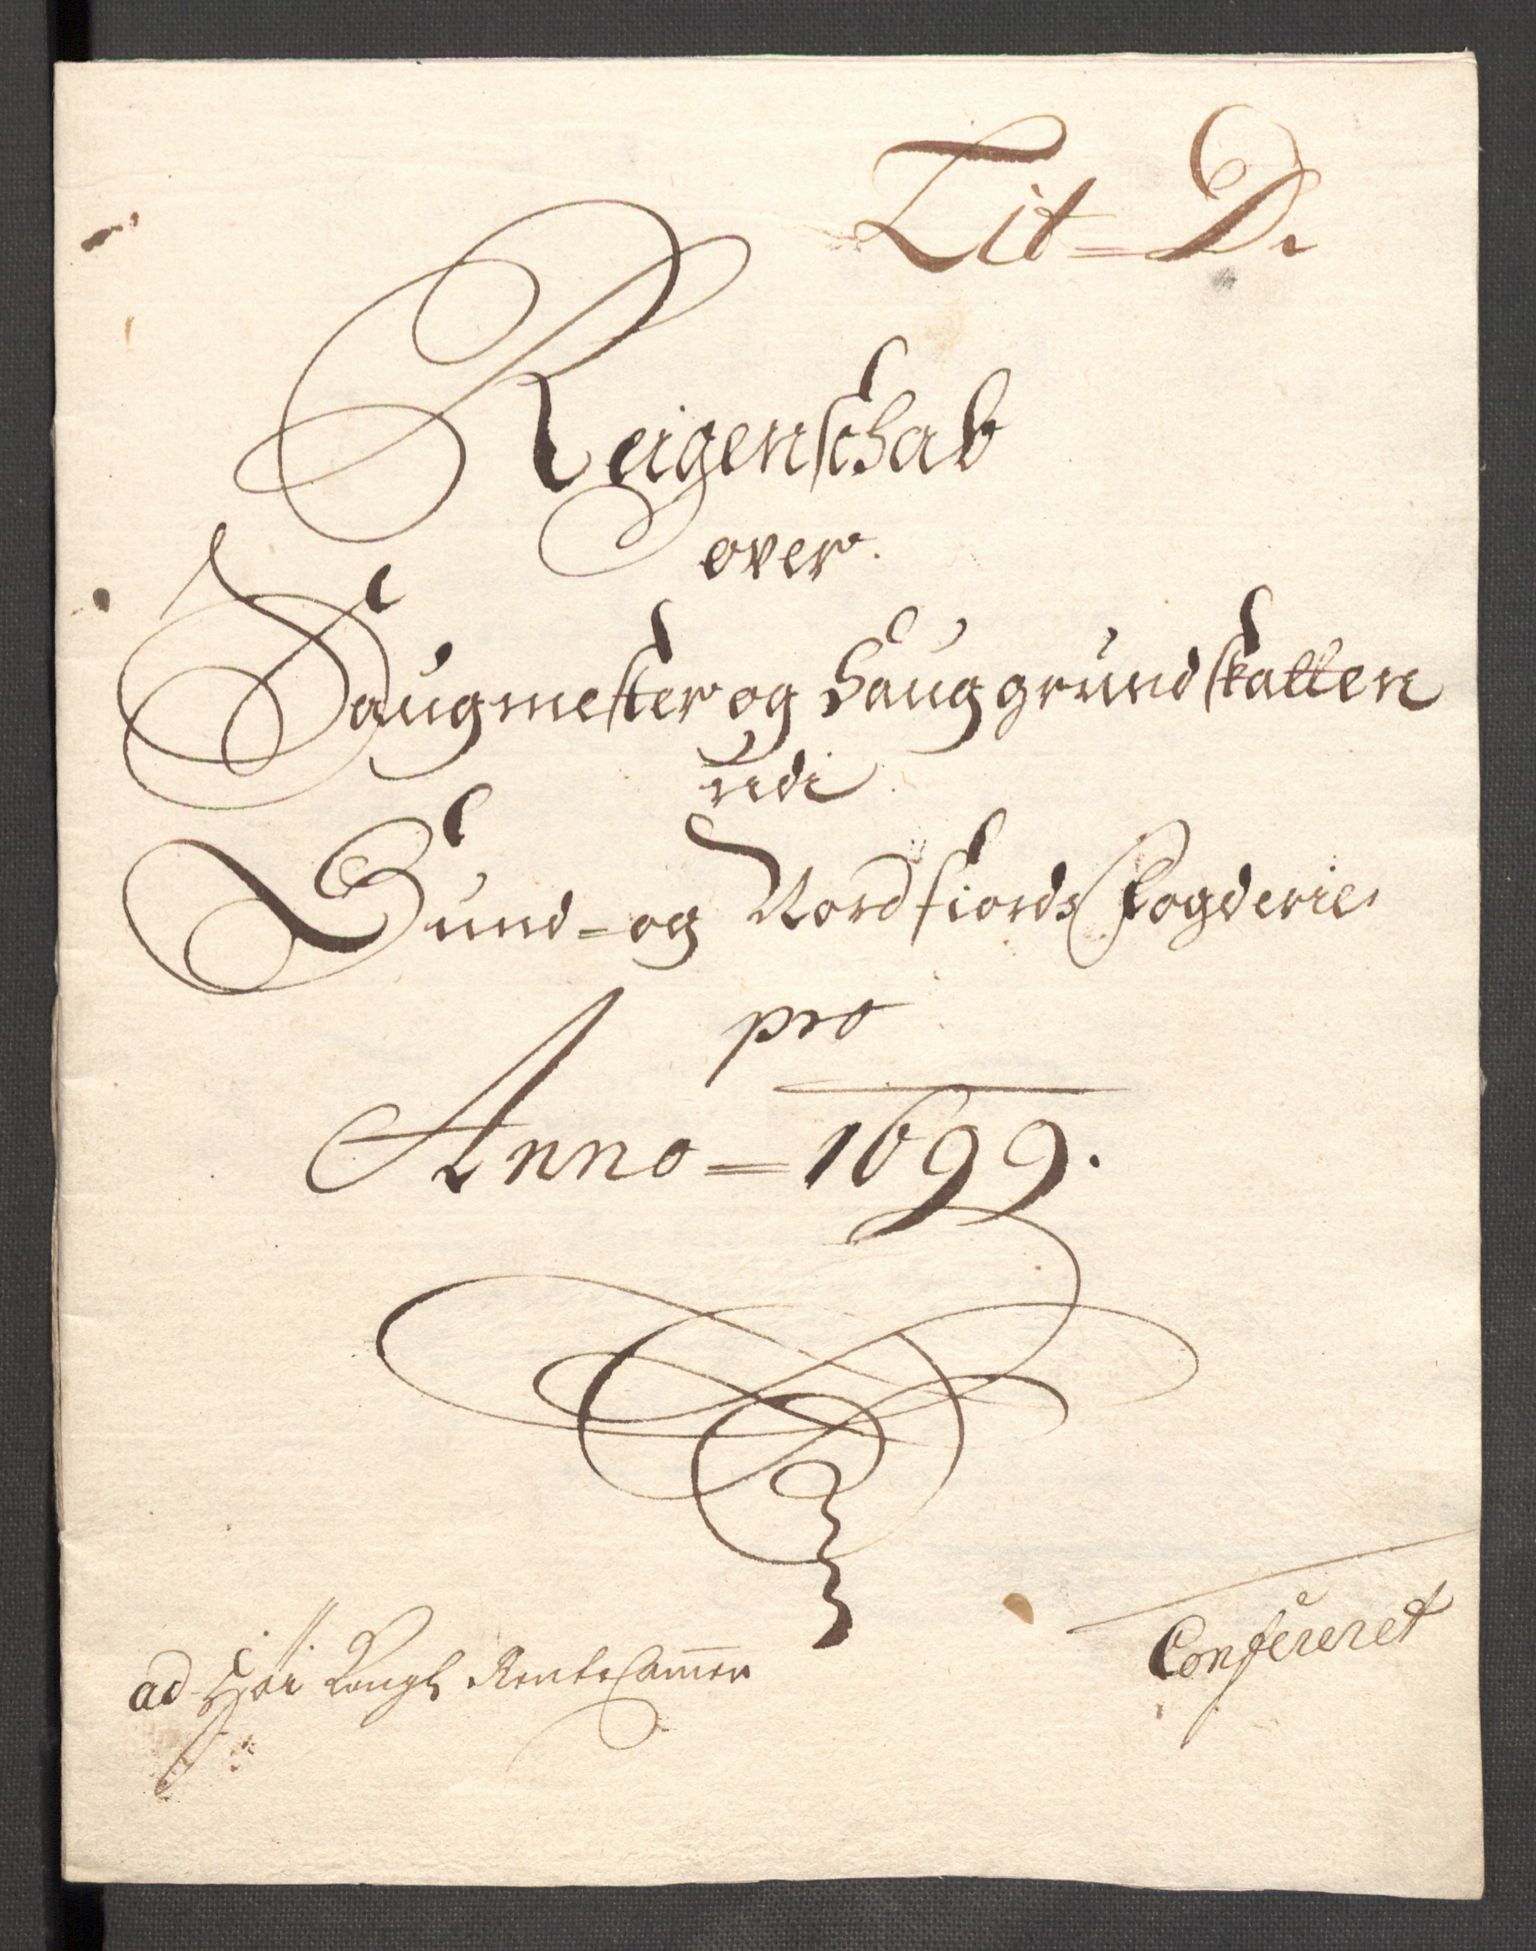 Lit D.
Reigenschab
over
Saugmester og Sauggrundskatten
udi
Sund- og Nordfiords Fogderie
pro
Anno 1699.
ad Høi Kongl RenteCammer
Confereret